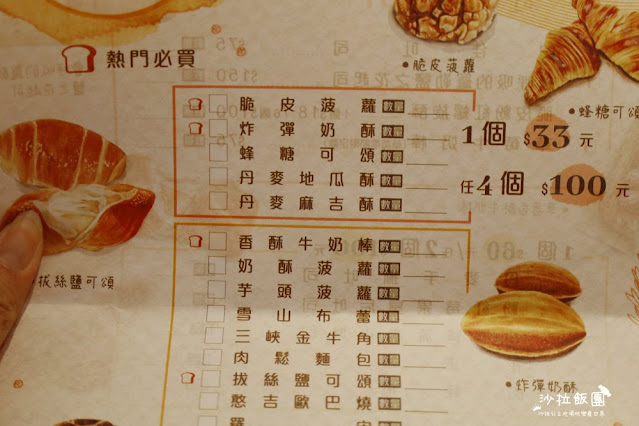 熱門必買
脆皮菠蘿
脆皮菠蘿 數量
炸彈奶酥 數量
蜂糖可頌 數量
丹麥地瓜酥 數量
丹麥麻吉酥 數量
蜂糖可頌
1個 $33元
任4個 $100元
拔絲鹽可頌
香酥牛奶棒 數量
奶酥菠蘿 數量
芋頭菠蘿 數量
雪山布蕾 數量
三峽金牛角 數量
肉鬆麵包 數量
拔絲鹽可頌 數量
憨吉歐巴燒 數量
炸彈奶酥
沙拉飯團